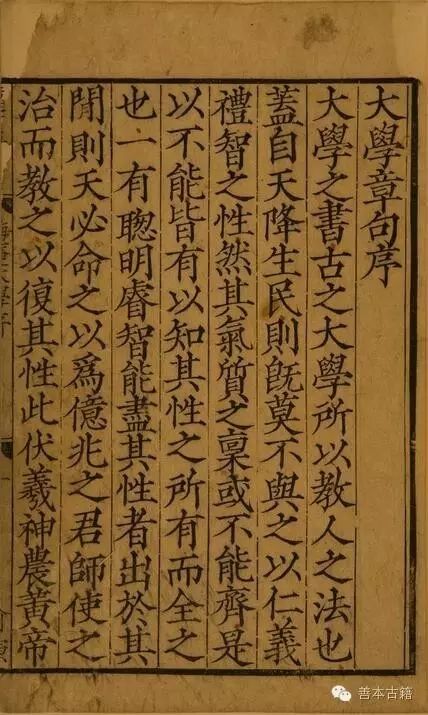 大學章句序
大學之書古之大學所以教人之法也
蓋自天降生民則旣莫不與之以仁義
禮智之性然其氣質之稟或不能齊是
以不能皆有以知其性之所有而全之
也一有聰明睿智能盡其性者出於其
閒則天必命之以爲億兆之君師使之
治而教之以復其性此伏羲神農黃帝
善本古籍